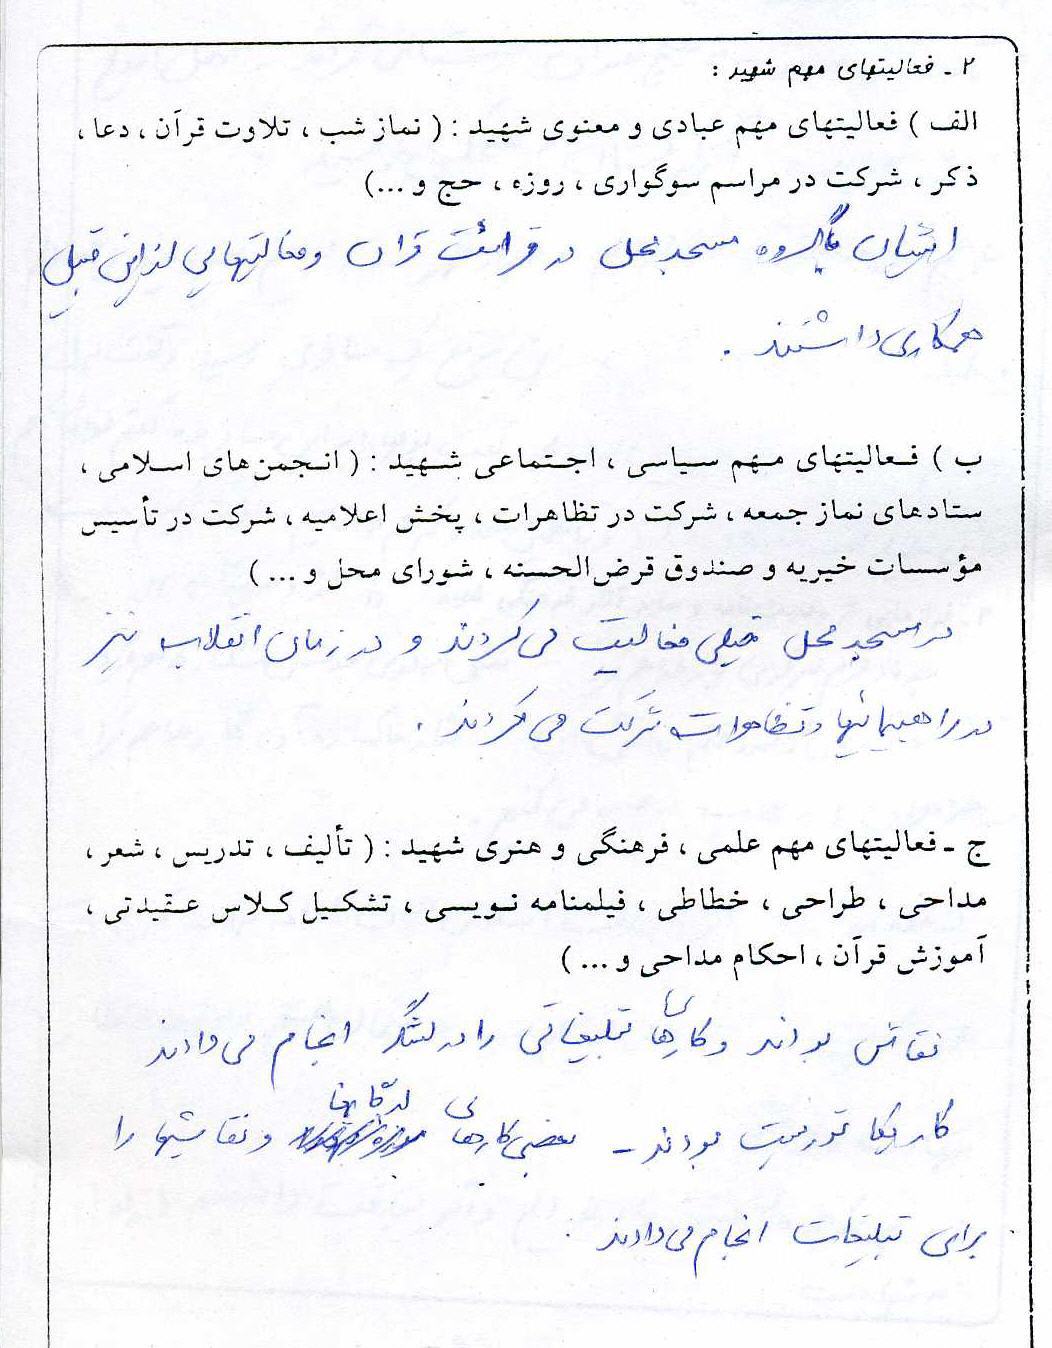 ۲ - فعالیتهای مهم شهید :
الف ) فعالیتهای مهم عبادی و معنوی شهید : ( نماز شب ، تلاوت قرآن ، دعا ،
ذکر ، شرکت در مراسم سوگواری ، روزه ، حج و ...)
ایشان با گروه مسجد محل در قرائت قران و فعالیتهایی از این قبیل
همکاری داشتند .
ب ) فعالیتهای مهم سیاسی ، اجتماعی شهید : ( انجمن‌های اسلامی ،
ستادهای نماز جمعه ، شرکت در تظاهرات ، پخش اعلامیه ، شرکت در تأسیس
مؤسسات خیریه و صندوق قرض‌الحسنه ، شورای محل و ... )
در مسجد محل خیلی فعالیت می کردند و در زمان انقلاب نیز
در راهپیمائیها و تظاهرات شرکت می کردند .
ج - فعالیتهای مهم علمی ، فرهنگی و هنری شهید : ( تألیف ، تدریس ، شعر ،
مداحی ، طراحی ، خطاطی ، فیلمنامه نویسی ، تشکیل کلاس عقیدتی ،
آموزش قرآن ، احکام مداحی و ... )
نقاش بودند و کارهای تبلیغاتی را در لشگر انجام می دادند
کاریکاتوریست بودند - بعضی کارهای و نقاشیها را
برای تبلیغات انجام می دادند .